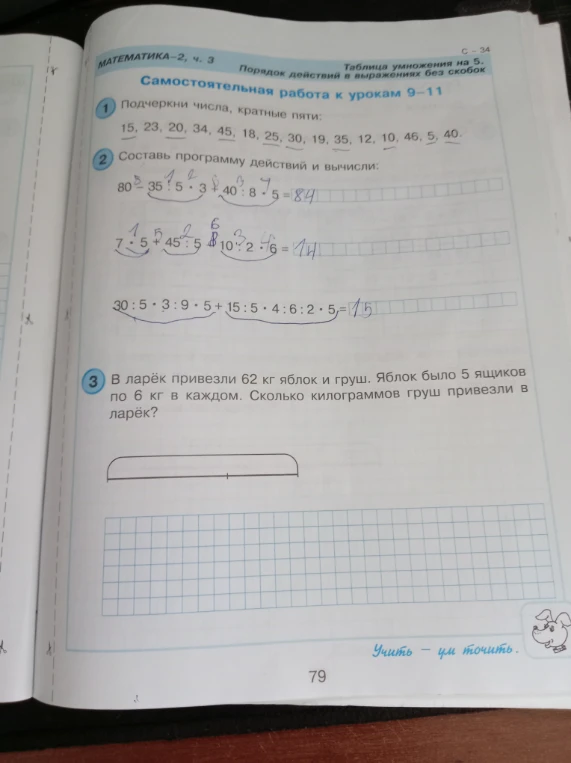 С – 34
МАТЕМАТИКА–2, ч. 3
Таблица умножения на 5.
Порядок действий в выражениях без скобок
Самостоятельная работа к урокам 9–11
1 Подчеркни числа, кратные пяти:
15, 23, 20, 34, 45, 18, 25, 30, 19, 35, 12, 10, 46, 5, 40.
2 Составь программу действий и вычисли:
80 – 35 : 5 · 3 + 40 : 8 · 5 = 84
7 · 5 + 45 : 5 – 10 : 2 · 6 = 14
30 : 5 · 3 : 9 · 5 + 15 : 5 · 4 : 6 : 2 · 5 = 15
3 В ларёк привезли 62 кг яблок и груш. Яблок было 5 ящиков
по 6 кг в каждом. Сколько килограммов груш привезли в
ларёк?
Учить – ум точить.
79